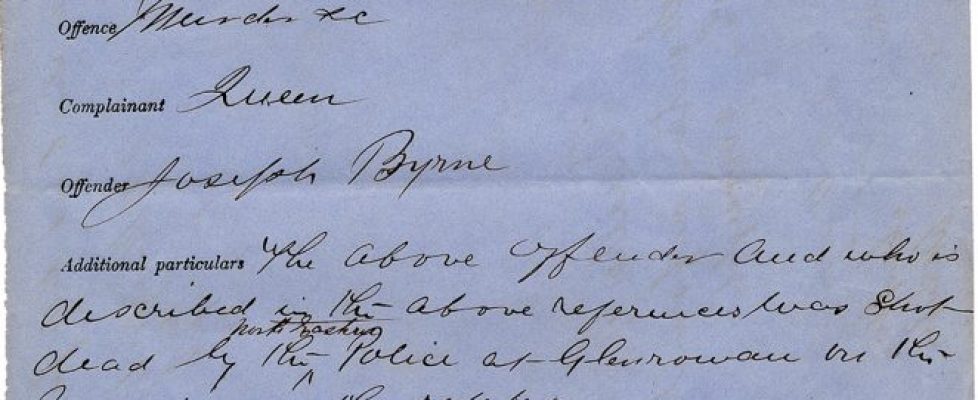 Offence Murder &c
Complainant Queen
Offender Joseph Byrne
Additional particulars The above offender and who is
described in the above references was Shot
dead by the Police at Glenrowan on the